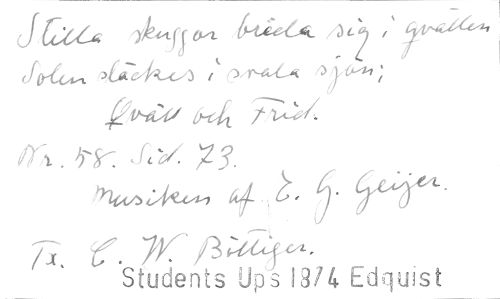 Stilla skuggor breda sig i qvällen
Solen släckes i svala sjön;
Qväll och Frid.
Nr. 58. Sid. 73.
Musiken af E. G. Geijer.
Tx. C. W. Böttiger.
Students Ups 1874 Edquist